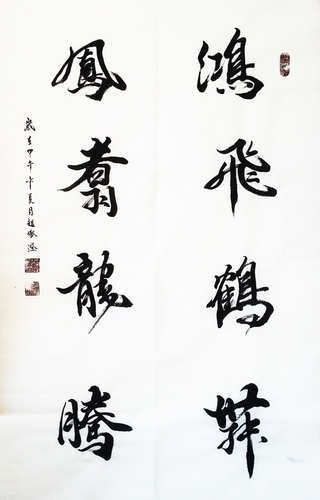 鴻飛鶴舞
鳳翥龍騰
歲在甲午年夏月趙